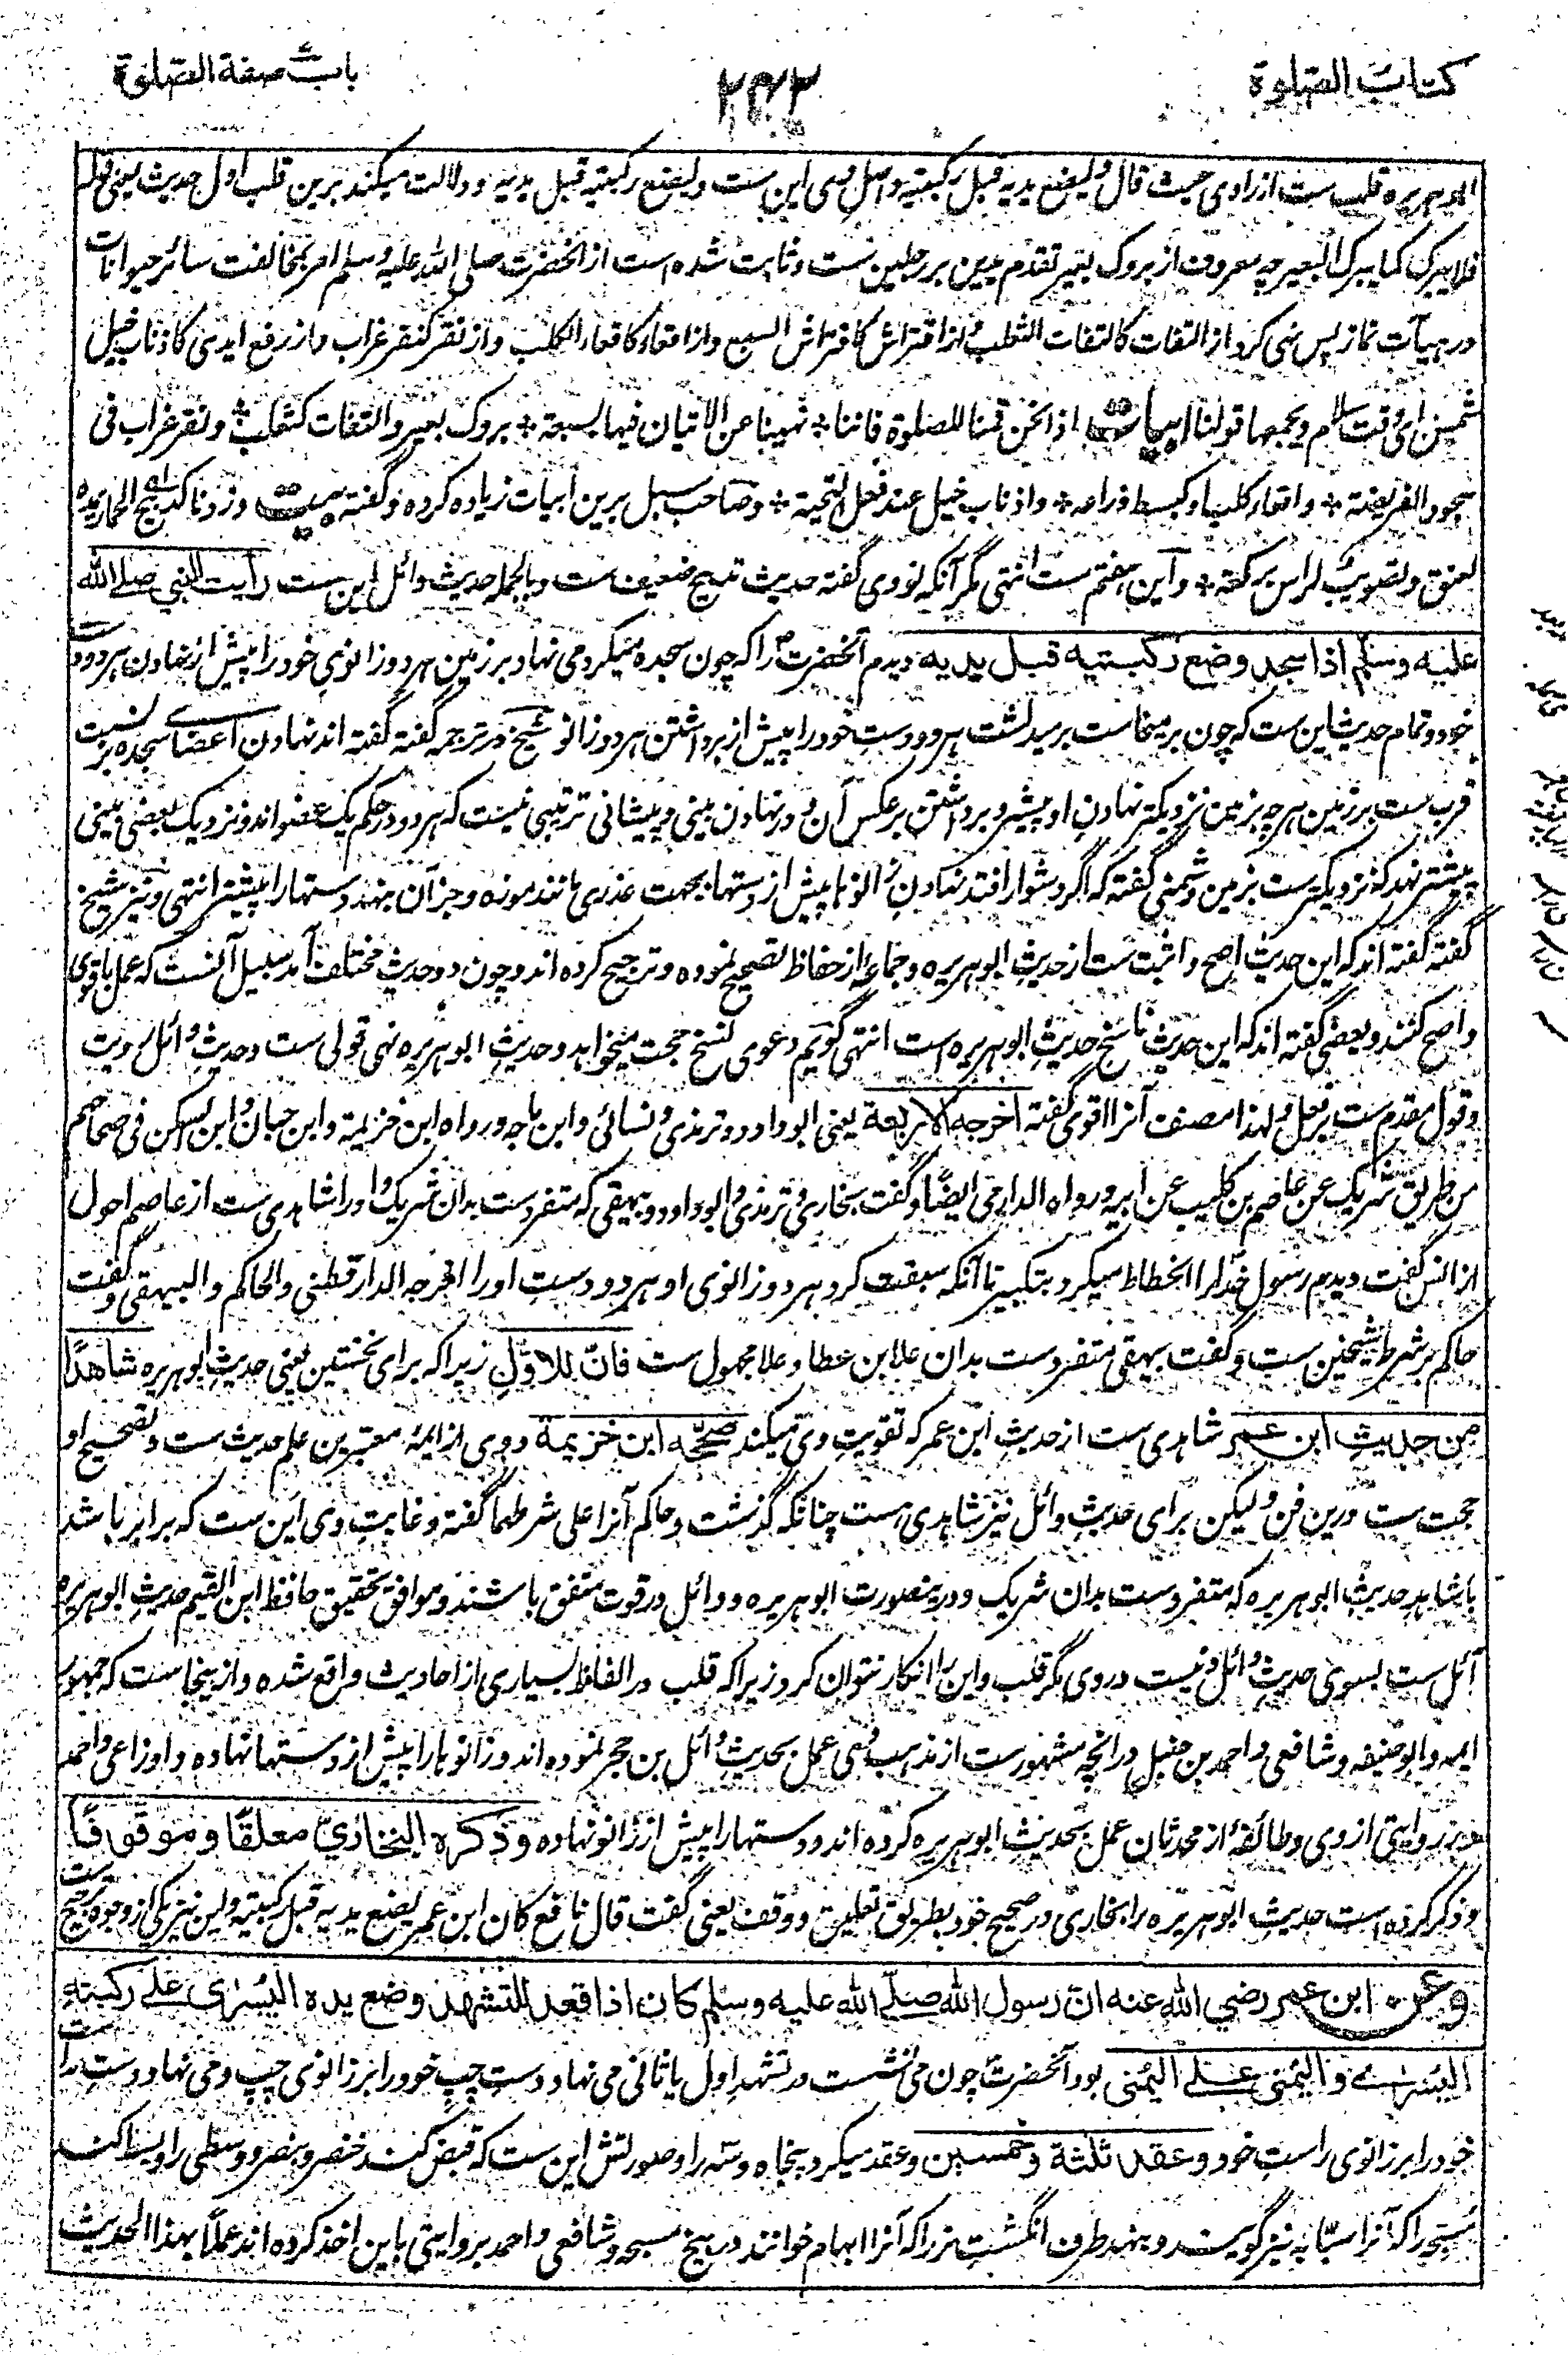 کتاب الصلوة
۲۴۲
باب صفة الصلوة
ابو هریره قلب ست از راوی حیث قال ولیضع یدیه قبل رکبتیه و اصل وی این ست ولیضع رکبتیه قبل یدیه و دلالت میکند برین قلب اول حدیث یعنی قوله
فلا یبرک کما یبرک البعیر چه معروف از بروک بعیر تقدم یدین بر رجلین ست و ثابت شده است از آنحضرت صلی الله علیه وسلم امر بمخالفت سائر حیوانات
در هیآت نماز پس نهی کرد از التفات کالتفات الثعلب و از افتراش کافتراش السبع و از اقعاء کاقعاء الکلب و از نقر کنقر غراب و از رفع ایدی کاذناب خیل
شمس ای وقت سلام و یجمعها قولنا ابیات اذا نحن قمنا للصلوة فاننا * نهینا عن الاتیان فیها بسبعة * بروک بعیر والتفات کثعلب * ونقر غراب فی
سجود الفریضة * واقعاء کلب او کبسط ذراعه * واذناب خیل عند فعل التحیة * و صاحب سبل برین ابیات زیاده کرده و گفته بیت وزدنا کتدبیح الحمار بمده
لعنق وتصویب لراس برکعة * و این هفتم ست انتهی مگر آنکه نووی گفته حدیث تدبیح ضعیف ست و بالجمله حدیث وائل این ست رأیت النبی صلے الله
علیه وسلم اذا سجد وضع رکبتیه قبل یدیه دیدم آنحضرت را که چون سجده میکرد می نهاد بر زمین هر دو زانوی خود را پیش از نهادن هر دو دست
خود و تمام حدیث این ست که چون برمیخاست برمیداشت هر دو دست خود را پیش از برداشتن هر دو زانو شیخ در ترجمه گفته گفته اند نهادن اعضای سجده بر نسبت
قرب ست بر زمین هر چه بزمین نزدیکتر نهادن او پیشتر و برداشتن بر عکس آن و در نهادن بینی و پیشانی ترتیبی نیست که هر دو در حکم یک عضو اند و نزدیک بعضی بینی
پیشتر نهد که نزدیکترست بزمین و شمنی گفته که اگر دشوار افتد نهادن زانوها پیش از دستها بجهت عذری مانند موزه و جز آن بنهد دستها را پیشتر انتهی و نیز شیخ
گفته گفته اند که این حدیث اصح و اثبت ست از حدیث ابو هریره و جماعه از حفاظ تصحیح نموده و ترجیح کرده اند و چون دو حدیث مختلف آمد سبیل آنست که عمل باقوی
و اصح کنند و بعضی گفته اند که این حدیث ناسخ حدیث ابو هریره است انتهی گویم دعوی نسخ حجت میخواهد و حدیث ابو هریره نهی قولی ست و حدیث وائل رویت
و قول مقدم ست بر فعل و لهذا مصنف آنرا اقوی گفته اخرجه الاربعة یعنی ابو داود و ترمذی و نسائی و ابن ماجه و رواه ابن خزیمة و ابن حبان و ابن السکن فی صحاحهم
من طریق شریک عن عاصم بن کلیب عن ابیه و رواه الدارمی ایضًا و گفت بخاری و ترمذی و ابو داود و بیهقی که متفرد ست بدان شریک و او را شاهدی ست از عاصم احول
از انس گفت دیدم رسول خدا را انحطاط میکرد بتکبیر تا آنکه سبقت کرد هر دو زانوی او هر دو دست او را اخرجه الدارقطنی والحاکم والبیهقی و گفت
حاکم بر شرط شیخین ست و گفت بیهقی متفرد ست بدان علا ابن عطا و علا مجهول ست فانّ للاوّل زیرا که برای نخستین یعنی حدیث ابو هریره شاهدًا
من حدیث ابن عمر شاهدی ست از حدیث ابن عمر که تقویت وی میکند صحّحه ابن خزیمة و وی از ایمهٔ معتبرین علم حدیث ست و تصحیح او
حجت ست درین فن و لیکن برای حدیث وائل نیز شاهدی هست چنانکه گذشت و حاکم آنرا علی شرطهما گفته و غایت وی این ست که برابر باشد
با شاهد حدیث ابو هریره که متفرد ست بدان شریک و درینصورت ابو هریره و وائل در قوت متفق باشند و موافق تحقیق حافظ ابن القیم حدیث ابو هریره
آئل ست بسوی حدیث وائل و نیست در وی مگر قلب و این را انکار نتوان کرد زیرا که قلب در الفاظ بسیاری از احادیث واقع شده و از ینجاست که جمهور
ایمه و ابو حنیفه و شافعی و احمد بن حنبل در آنچه مشهورست از مذهب وی عمل بحدیث وائل بن حجر نموده اند و زانوها را پیش از دستها نهاده و اوزاعی و احمد
در روایتی از وی و طائفهٔ از محدثان عمل بحدیث ابو هریره کرده اند و دستها را پیش از زانو نهاده وذکره البخاریّ معلقًا وموقوفًا
و ذکر کرده است حدیث ابو هریره را بخاری در صحیح خود بطریق تعلیق و وقف یعنی گفت قال نافع کان ابن عمر یضع یدیه قبل رکبتیه و این نیز یکی از وجوه ترجیح ست
وعن ابن عمر رضی الله عنه انّ رسول الله صلّے الله علیه وسلم کان اذا قعد للتشهد وضع یده الیُسرٰی علے رکبتهِ
الیُسرٰے والیُمنی علے الیُمنی بود آنحضرت چون می نشست در تشهد اول یا ثانی می نهاد دست چپ خود را بر زانوی چپ و می نهاد دست راست
خود را بر زانوی راست خود وعقد ثلثة وخمسین و عقد میکرد پنجاه و سه را و صورتش این ست که قبض کند خنصر و بنصر و وسطی را و یسرا کند
مسبحه را که آنرا سبّابه نیز گویند و بنهد طرف انگشت نر را که آنرا ابهام خوانند در بیخ مسبحه و شافعی و احمد بروایتی باین اخذ کرده اند عملًا بهذا الحدیث